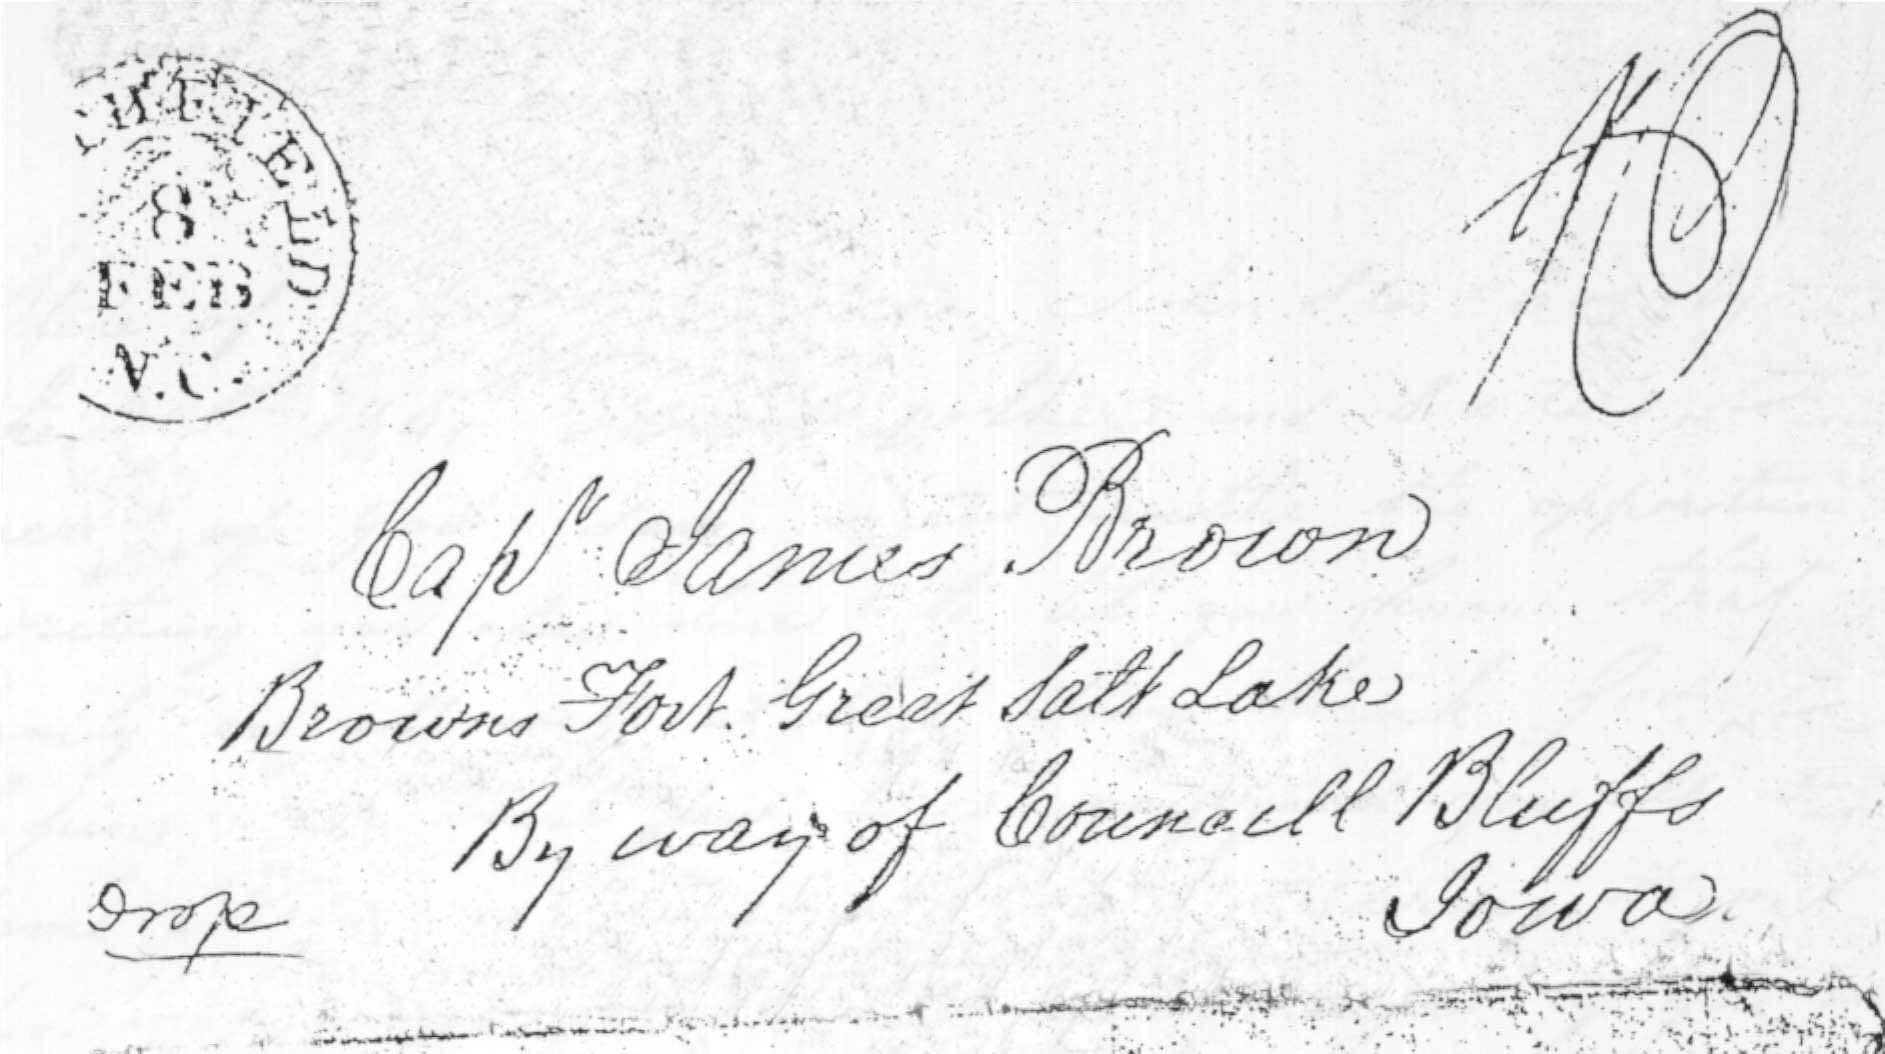 8
FEB
N.C.
10
Capt James Brown
Browns Fort. Great Salt Lake
By way of Councill Bluffs
Iowa
Drop